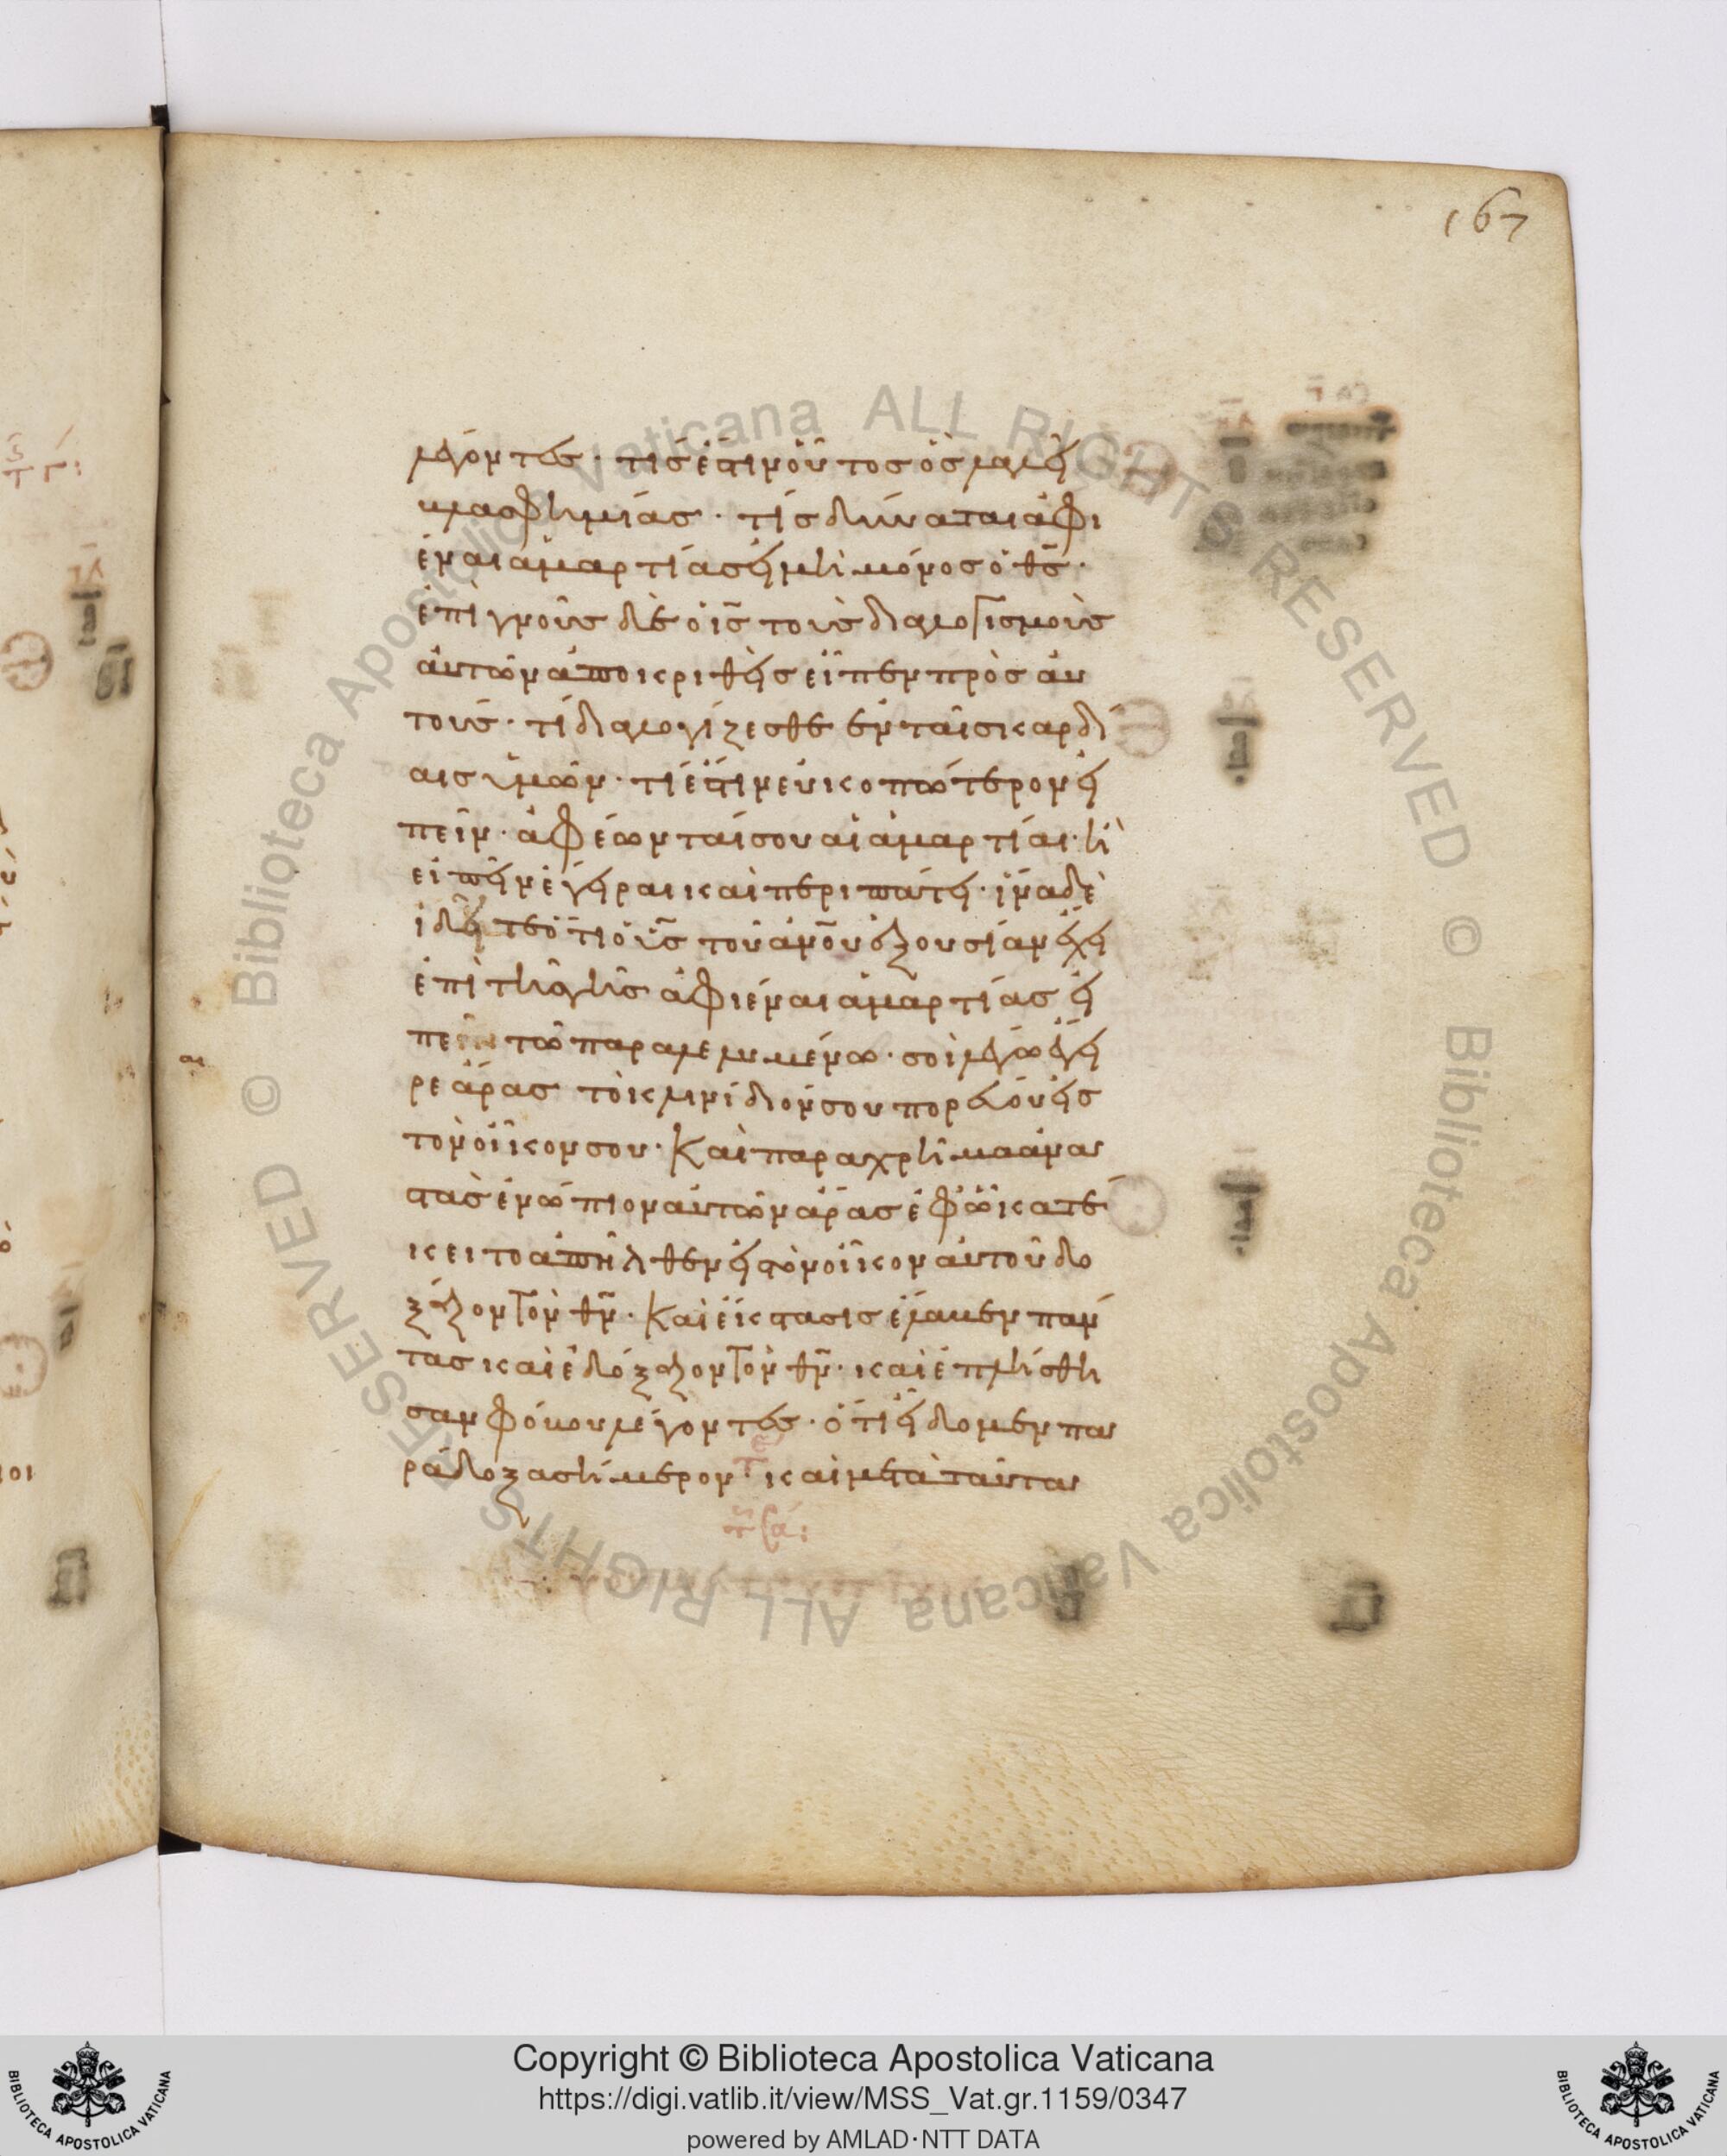 167
λέγοντες· τίς ἐστιν οὗτος ὃς λαλεῖ
βλασφημίας· τίς δύναται ἀφι
έναι ἁμαρτίας εἰ μὴ μόνος ὁ θς̄·
ἐπιγνοὺς δὲ ὁ ις̄ τοὺς διαλογισμοὺς
αὐτῶν ἀποκριθεὶς εἶπεν πρὸς αὐ
τούς· τί διαλογίζεσθε ἐν ταῖς καρδί
αις ὑμῶν· τί ἐστιν εὐκοπώτερον εἰ
πεῖν· ἀφέωνταί σου αἱ ἁμαρτίαι· ἢ
εἰπεῖν ἔγειραι καὶ περιπάτει· ἵνα δὲ
ἰδῆτε ὅτι ὁ ῡς τοῦ ἀν̄ου ἐξουσίαν ἔχει
ἐπὶ τῆς γῆς ἀφιέναι ἁμαρτίας εἶ
πεν τῶ παραλελυμένω· σοὶ λέγω ἔγει
ρε ἄρας τὸ κλινίδιόν σου πορεύου εἰς
τὸν οἶκον σου· Καὶ παραχρῆμα ἀνα
στὰς ἐνώπιον αὐτῶν ἄρας ἐφ' ὧ κατέ
κειτο ἀπῆλθεν εἰς τὸν οἶκον αὐτοῦ δο
ξάζων τὸν θν̄· Καὶ ἔκστασις ἔλαβεν πάν
τας καὶ ἐδόξαζον τὸν θν̄· καὶ ἐπλήσθη
σαν φόβου λέγοντες· ὅτι εἴδομεν πα
ράδοξα σήμερον· καὶ μετὰ ταῦτα
Copyright © Biblioteca Apostolica Vaticana
https://digi.vatlib.it/view/MSS_Vat.gr.1159/0347
powered by AMLAD·NTT DATA